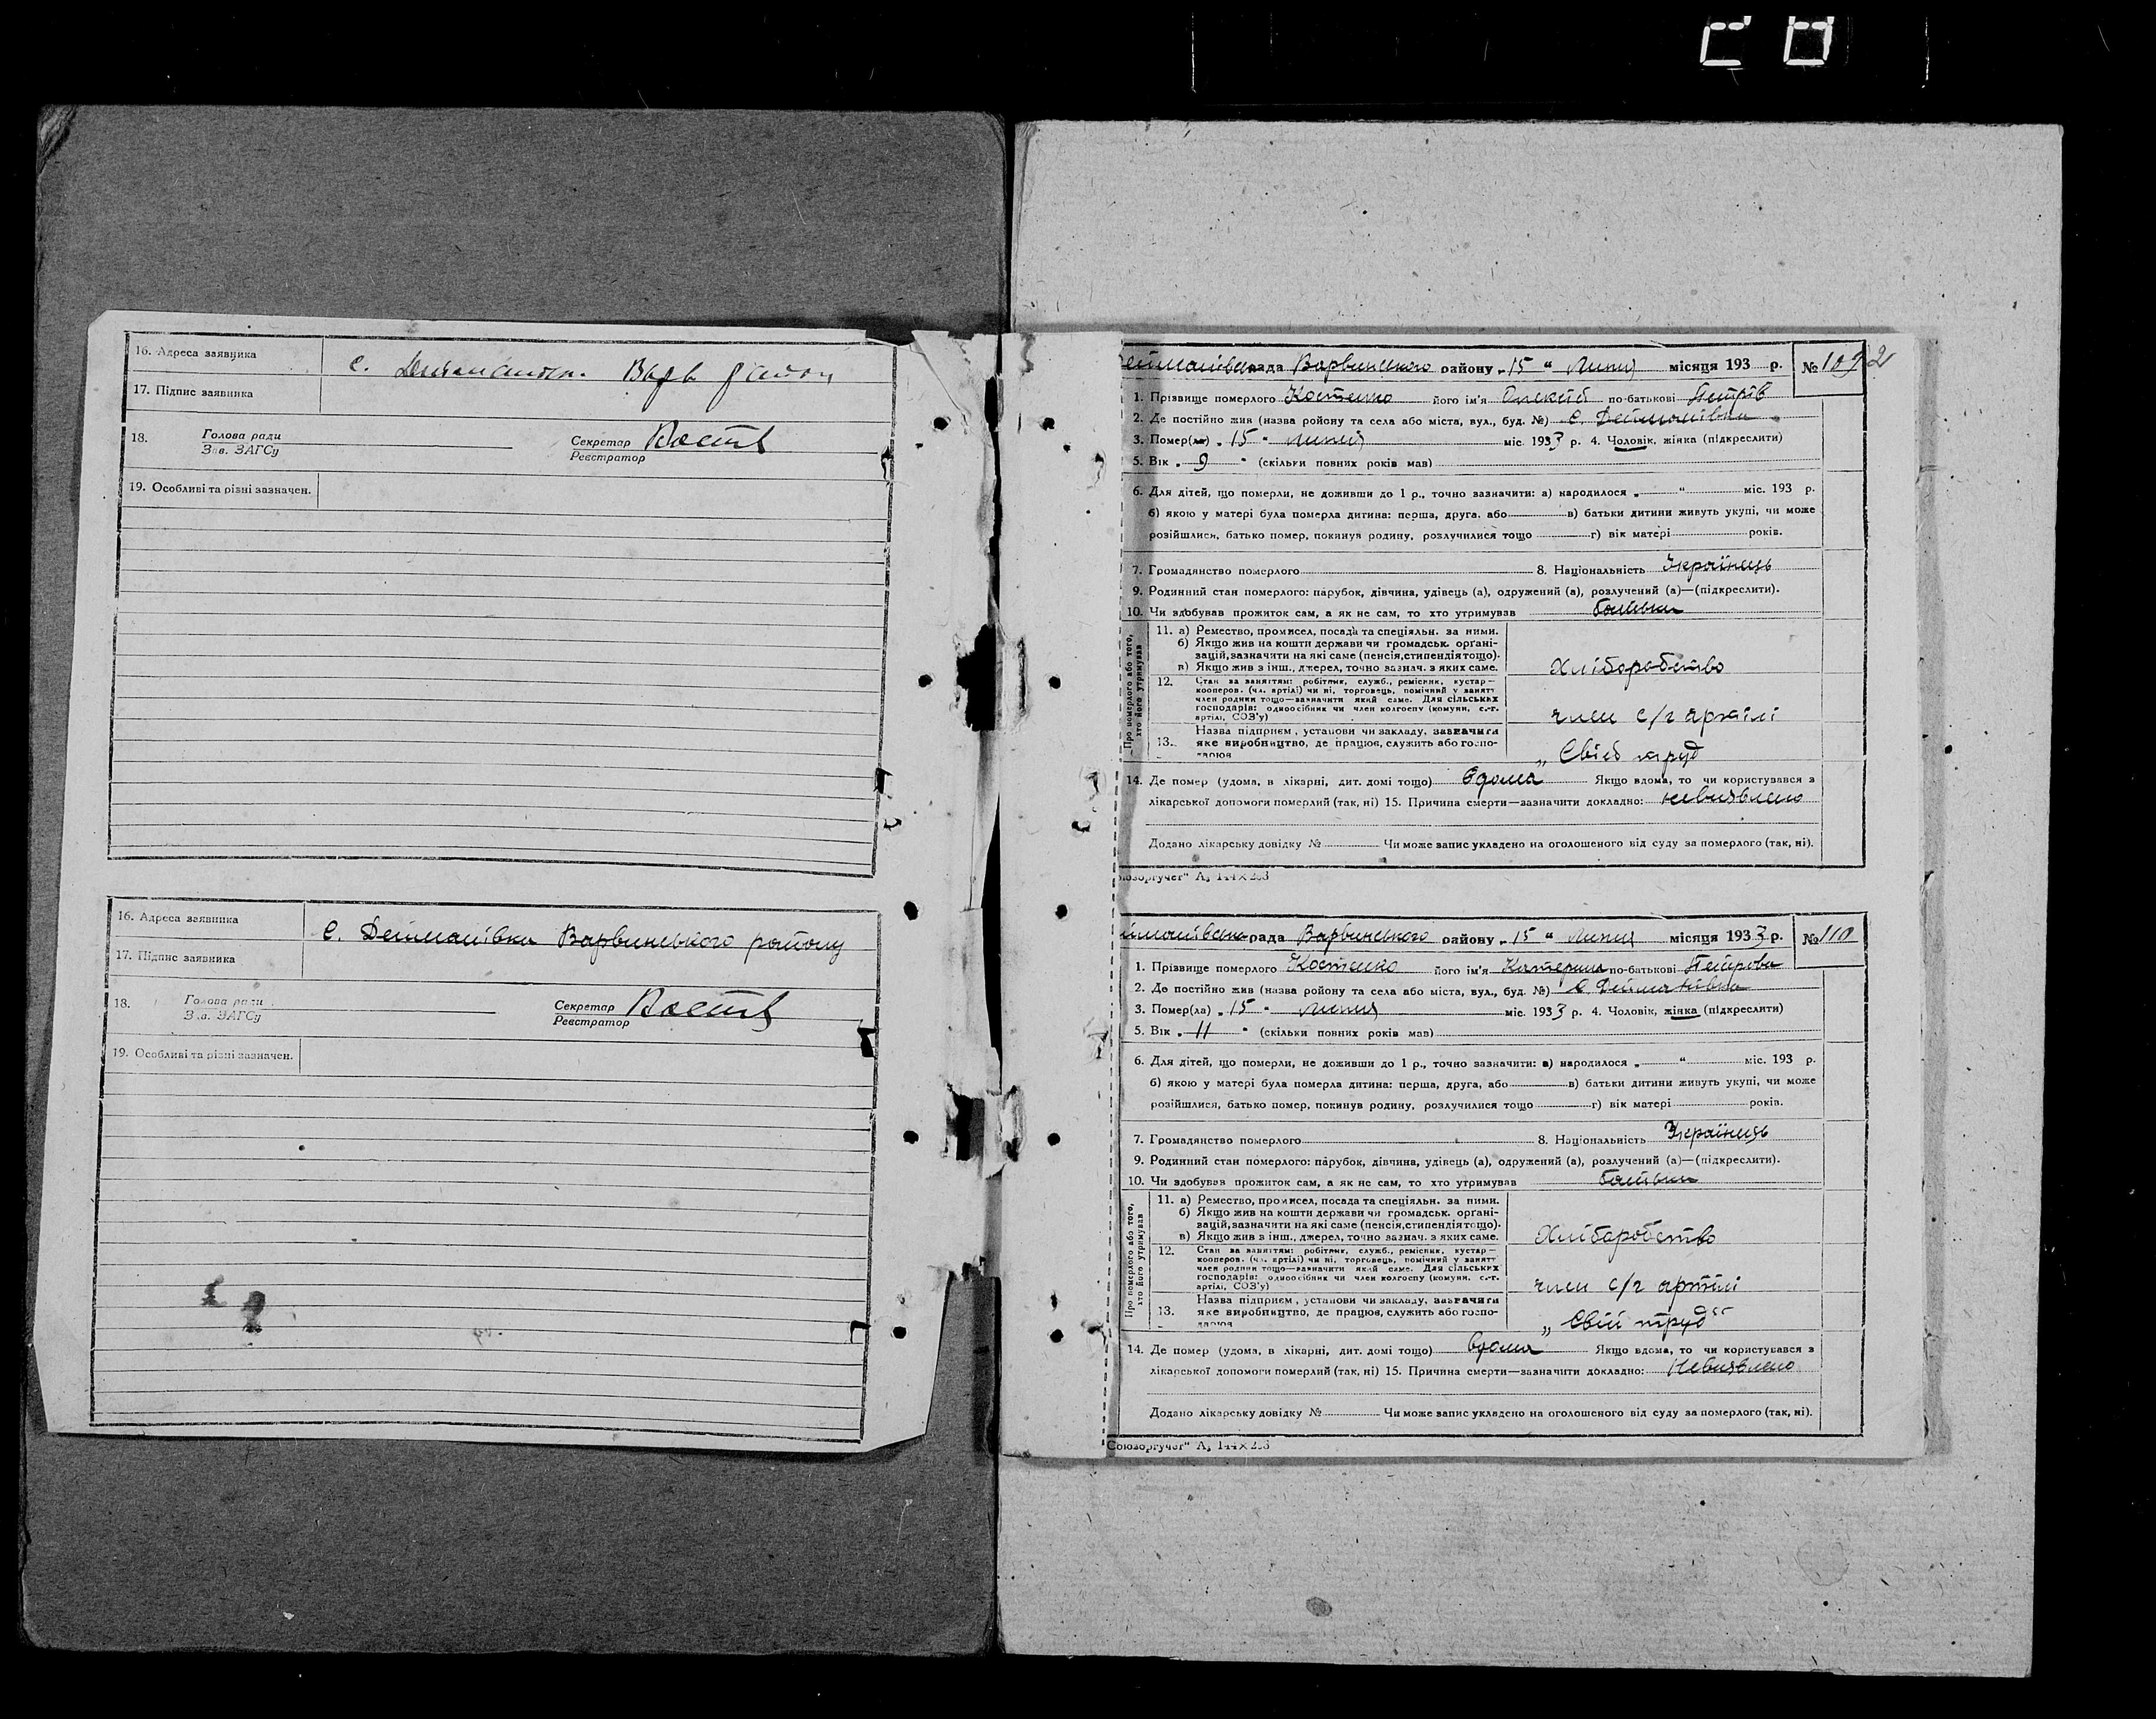 16. Адреса заявника
с. Дейманівк. Варв район
17. Підпис заявника
18. Голова ради
Зав. ЗАГСу
Секретар
Реєстратор
19. Особливі та різні зазначен.
16. Адреса заявника
с. Дейманівка Варвинського району
17. Підпис заявника
18. Голова ради
Зав. ЗАГСу
Секретар
Реєстратор
19. Особливі та різні зазначен.
ейманівська рада Варвинського району „15“ Липня місяця 193 р. № 109 2
1. Прізвище померлого Костенко його ім'я Олексій по-батькові Петрів
2. Де постійно жив (назва району та села або міста, вул., буд. №) с. Дейманівка
3. Помер(ла) „15“ липня міс. 1933 р. 4. Чоловік, жінка (підкреслити)
5. Вік „9“ (скільки повних років мав)
6. Для дітей, що померли, не доживши до 1 р., точно зазначити: а) народилося „ “ міс. 193 р.
б) якою у матері була померла дитина: перша, друга, або в) батьки дитини живуть укупі, чи може
розійшлися, батько помер, покинув родину, розлучилися тощо г) вік матері років.
7. Громадянство померлого 8. Національність Українець
9. Родинний стан померлого: парубок, дівчина, удівець (а), одружений (а), розлучений (а)—(підкреслити).
10. Чи здобував прожиток сам, а як не сам, то хто утримував батьки
Про померлого або того, хто його утримував
11. а) Ремество, промисел, посада та спеціяльн. за ними.
б) Якщо жив на кошти держави чи громадськ. органі-
зацій, зазначити на які саме (пенсія, стипендія тощо).
в) Якщо жив з інш., джерел, точно зазнач. з яких саме.
Хліборобство
12. Стан за заняттям: робітник, служб., ремісник, кустар—
кооперов. (чл. артілі) чи ні, торговець, помічний у занятт
член родини тощо—зазначити який саме. Для сільських
господарів: одноосібник чи член колгоспу (комуни, с.-г.
артілі, СОЗ'у)
член с/г артілі
13. Назва підприєм., установи чи закладу, зазначити
яке виробництво, де працює, служить або госпо-
дарює
„Свій труд
14. Де помер (удома, в лікарні, дит. домі тощо) вдома Якщо вдома, то чи користувався з
лікарської допомоги померлий (так, ні) 15. Причина смерти—зазначити докладно: невиявлено
Додано лікарську довідку № Чи може запис укладено на оголошеного від суду за померлого (так, ні).
оюзоргучет" А₅ 144×203
йманівська рада Варвинського району „15“ Липня місяця 1933 р. № 110
1. Прізвище померлого Костенко його ім'я Катерина по-батькові Петрова
2. Де постійно жив (назва району та села або міста, вул., буд. №) с Дейманівка
3. Помер(ла) „15“ липня міс. 1933 р. 4. Чоловік, жінка (підкреслити)
5. Вік „11“ (скільки повних років мав)
6. Для дітей, що померли, не доживши до 1 р., точно зазначити: а) народилося „ “ міс. 193 р.
б) якою у матері була померла дитина: перша, друга, або в) батьки дитини живуть укупі, чи може
розійшлися, батько помер, покинув родину, розлучилися тощо г) вік матері років.
7. Громадянство померлого 8. Національність Українець
9. Родинний стан померлого: парубок, дівчина, удівець (а), одружений (а), розлучений (а)—(підкреслити).
10. Чи здобував прожиток сам, а як не сам, то хто утримував батьки
Про померлого або того, хто його утримував
11. а) Ремество, промисел, посада та спеціяльн. за ними.
б) Якщо жив на кошти держави чи громадськ. органі-
зацій, зазначити на які саме (пенсія, стипендія тощо).
в) Якщо жив з інш., джерел, точно зазнач. з яких саме.
Хліборобство
12. Стан за заняттям: робітник, служб., ремісник, кустар—
кооперов. (чл. артілі) чи ні, торговець, помічний у занятт
член родини тощо—зазначити який саме. Для сільських
господарів: одноосібник чи член колгоспу (комуни, с.-г.
артілі, СОЗ'у)
член с/г артілі
13. Назва підприєм., установи чи закладу, зазначити
яке виробництво, де працює, служить або госпо-
дарює
„Свій труд"
14. Де помер (удома, в лікарні, дит. домі тощо) вдома Якщо вдома, то чи користувався з
лікарської допомоги померлий (так, ні) 15. Причина смерти—зазначити докладно: Невиявлено
Додано лікарську довідку № Чи може запис укладено на оголошеного від суду за померлого (так, ні).
Союзоргучет" А₅ 144×203